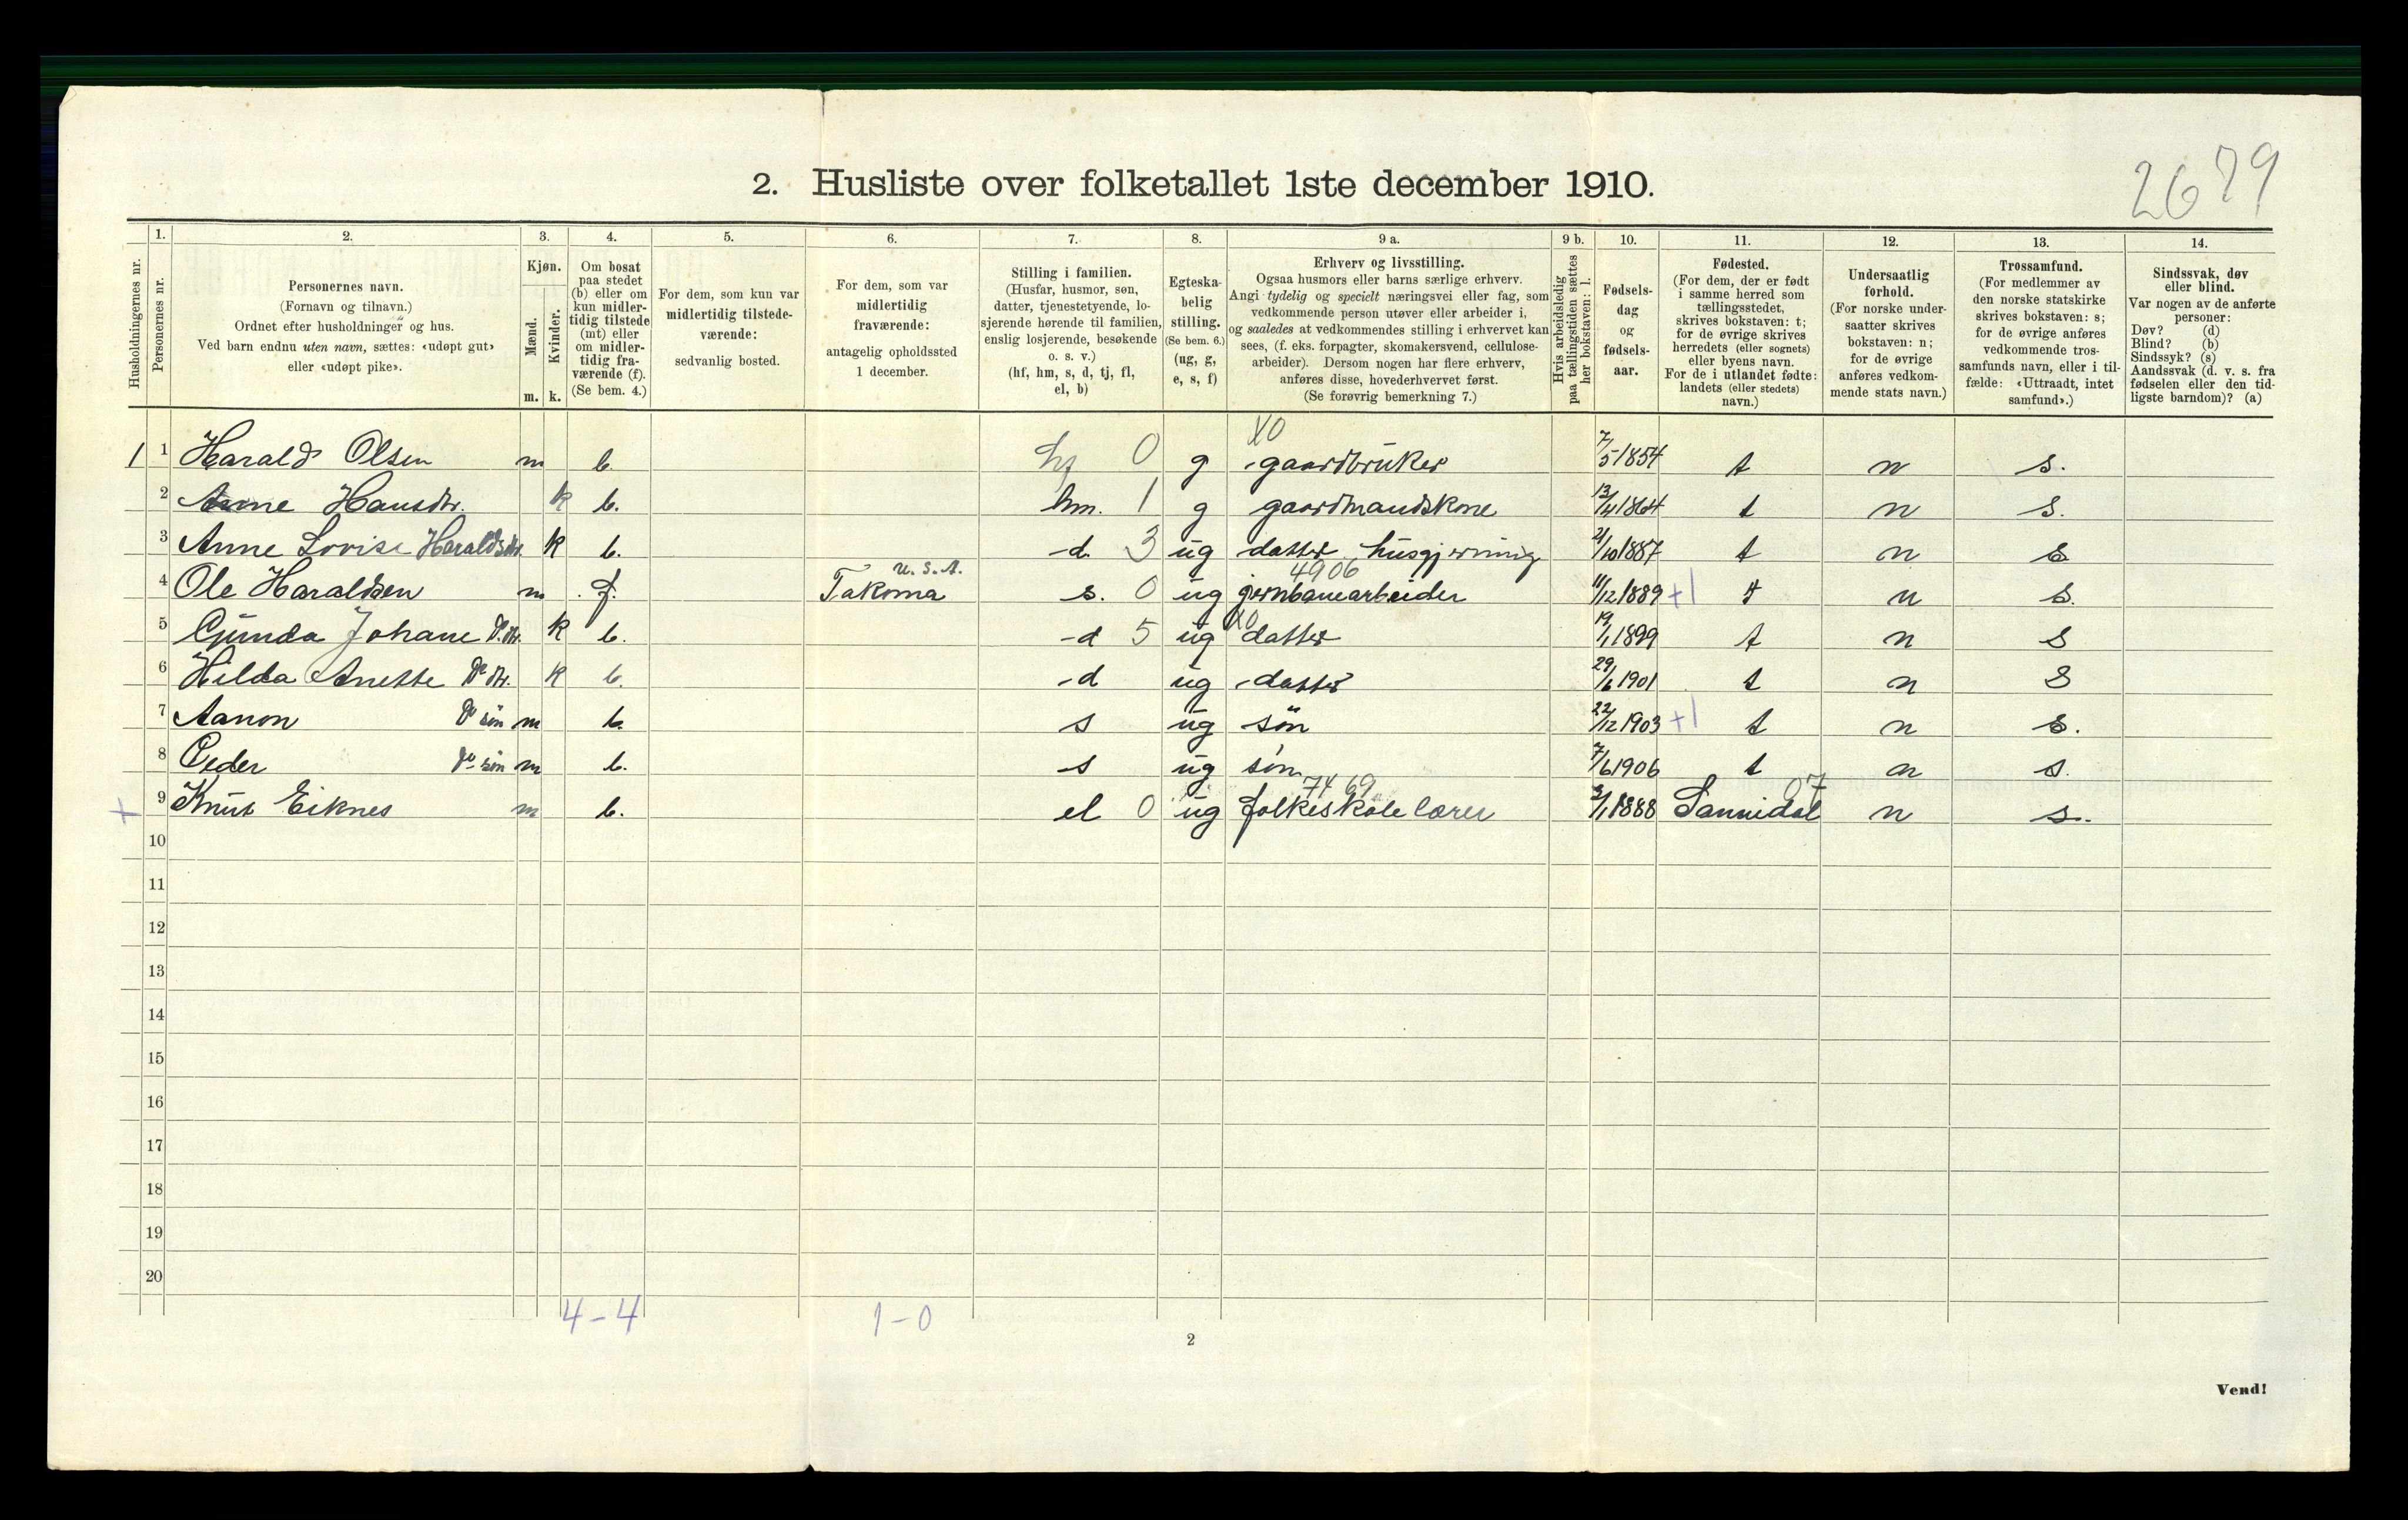 2679
2. Husliste over folketallet 1ste december 1910.
Husholdningernes nr.
1. Personernes nr.
2. Personernes navn.
(Fornavn og tilnavn.)
Ordnet efter husholdninger og hus.
Ved barn endnu uten navn, sættes: «udøpt gut»
eller «udøpt pike».
3. Kjøn.
Mænd. Kvinder.
m. k.
4. Om bosat
paa stedet
(b) eller om
kun midler-
tidig tilstede
(mt) eller
om midler-
tidig fra-
værende (f).
(Se bem. 4.)
5. For dem, som kun var
midlertidig tilstede-
værende:
sedvanlig bosted.
6. For dem, som var
midlertidig
fraværende:
antagelig opholdssted
1 december.
7. Stilling i familien.
(Husfar, husmor, søn,
datter, tjenestetyende, lo-
sjerende hørende til familien,
enslig losjerende, besøkende
o. s. v.)
(hf, hm, s, d, tj, fl,
el, b)
8. Egteska-
belig
stilling.
(Se bem. 6.)
(ug, g,
e, s, f)
9 a. Erhverv og livsstilling.
Ogsaa husmors eller barns særlige erhverv.
Angi tydelig og specielt næringsvei eller fag, som
vedkommende person utøver eller arbeider i,
og saaledes at vedkommendes stilling i erhvervet kan
sees, (f. eks. forpagter, skomakersvend, cellulose-
arbeider). Dersom nogen har flere erhverv,
anføres disse, hovederhvervet først.
(Se forøvrig bemerkning 7.)
9 b. Hvis arbeidsledig
paa tællingstiden sættes
her bokstaven: l.
10. Fødsels-
dag
og
fødsels-
aar.
11. Fødested.
(For dem, der er født
i samme herred som
tællingsstedet,
skrives bokstaven: t;
for de øvrige skrives
herredets (eller sognets)
eller byens navn.
For de i utlandet fødte:
landets (eller stedets)
navn.)
12. Undersaatlig
forhold.
(For norske under-
saatter skrives
bokstaven: n;
for de øvrige
anføres vedkom-
mende stats navn.)
13. Trossamfund.
(For medlemmer av
den norske statskirke
skrives bokstaven: s;
for de øvrige anføres
vedkommende tros-
samfunds navn, eller i til-
fælde: «Uttraadt, intet
samfund».)
14. Sindssvak, døv
eller blind.
Var nogen av de anførte
personer:
Døv? (d)
Blind? (b)
Sindssyk? (s)
Aandssvak (d. v. s. fra
fødselen eller den tid-
ligste barndom)? (a)
X0
1 1 Harald Olsen m b. hf 0 g gaardbruker 7/5 1854 t n s.
2 Anne Hansdtr. k b. hm. 1 g gaardmandskone 13/4 1864 t n s.
3 Anne Lovise Haraldsdtr. k b. d. 3 ug datter, husgjerning 21/10 1887 t n s
U.S.A. 4906
4 Ole Haraldsen m f. Takoma s. 0 ug jernbanearbeider 11/12 1889 +1 t n s.
X0
5 Gunda Johane Do. dtr. k b. d 5 ug datter 19/1 1899 t n s
6 Hilda Anette Do dtr. k b. d ug datter 29/6 1901 t n s
7 Aanon Do søn m b. s ug søn 22/12 1903 +1 t n s.
8 Peder Do søn m b. s ug søn 7/6 1906 t n s.
7469 07
+ 9 Knut Eiknes m b. el 0 ug folkeskolelærer 3/1 1888 Sannidal n s.
10
11
12
13
14
15
16
17
18
19
20
4-4 1-0
2
Vend!